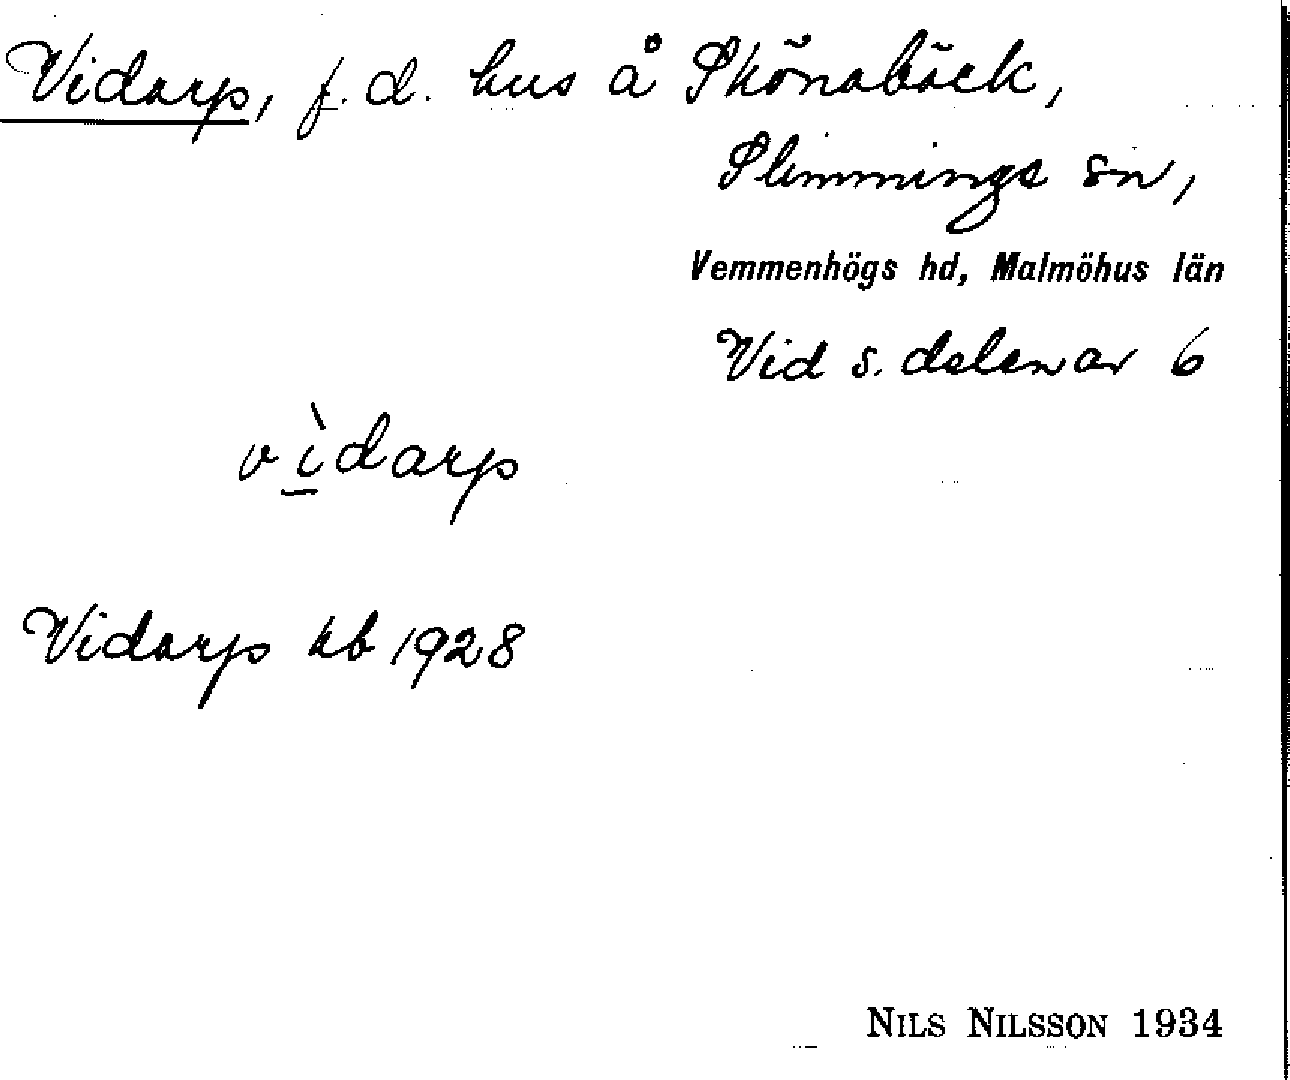 Vidarp, f.d. hus å Skönabäck,
Slimminge sn,
Vemmenhögs hd, Malmöhus län
Vid s. delen av 6
vìdarp
Vidarp kb 1928
NILS NILSSON 1934